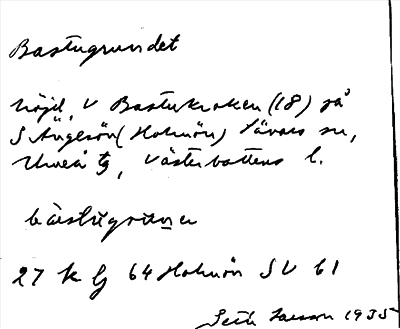 Bastugrundet
höjd, V Bastukroken (18) på
S Ängesön (Holmön) Sävars sn,
Umeå tg, Västerbottens l.
27 k lj 64 Holmön SV 61
Seth Larsson 1935